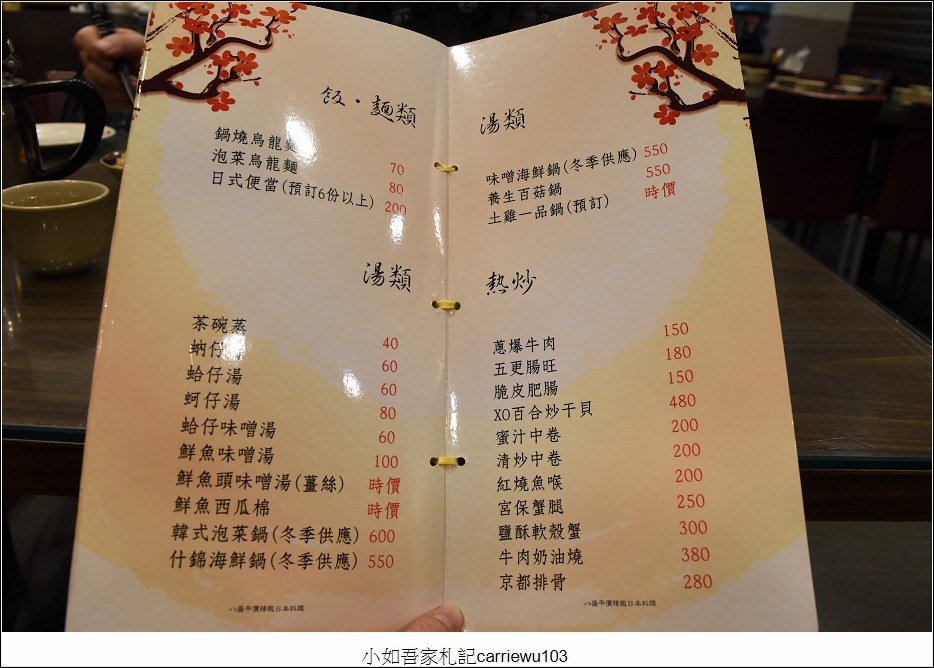 飯·麵類
鍋燒烏龍麵 70
泡菜烏龍麵 80
日式便當(預訂6份以上) 200
湯類
茶碗蒸 40
蚋仔 60
蛤仔湯 60
蚵仔湯 80
蛤仔味噌湯 60
鮮魚味噌湯 100
鮮魚頭味噌湯(薑絲) 時價
鮮魚西瓜棉 時價
韓式泡菜鍋(冬季供應) 600
什錦海鮮鍋(冬季供應) 550
八盛平價精緻日本料理
湯類
味噌海鮮鍋(冬季供應) 550
養生百菇鍋 550
土雞一品鍋(預訂) 時價
熱炒
蔥爆牛肉 150
五更腸旺 180
脆皮肥腸 150
XO百合炒干貝 480
蜜汁中卷 200
清炒中卷 200
紅燒魚喉 200
宮保蟹腿 250
鹽酥軟殼蟹 300
牛肉奶油燒 380
京都排骨 280
八盛平價精緻日本料理
小如吾家札記carriewu103